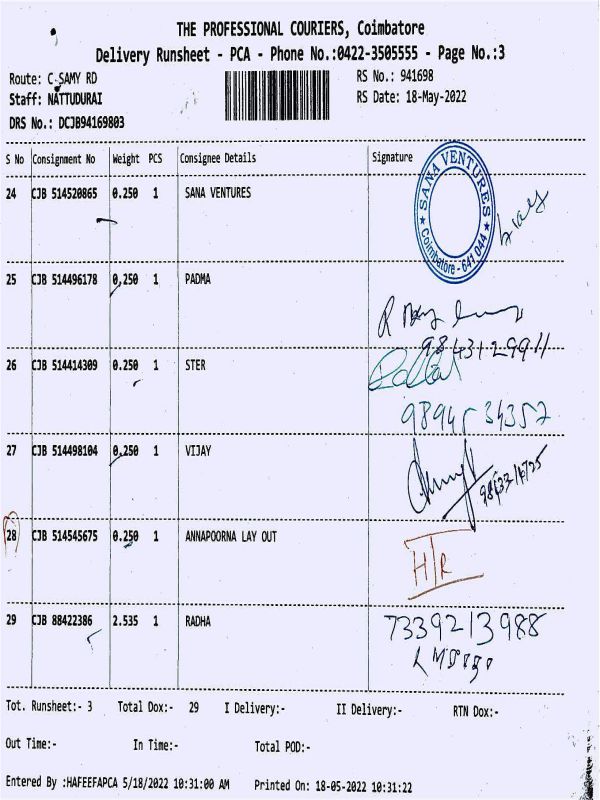 THE PROFESSIONAL COURIERS, Coimbatore
Delivery Runsheet - PCA - Phone No.:0422-3505555 - Page No.:3
Route: C SAMY RD
RS No.: 941698
Staff: NATTUDURAI
RS Date: 18-May-2022
DRS No.: DCJB94169803
S No Consignment No Weight PCS Consignee Details Signature
24 CJB 514520865 0.250 1 SANA VENTURES
SANA VENTURES
Coimbatore - 641 044
25 CJB 514496178 0.250 1 PADMA
98431 29911
26 CJB 514414309 0.250 1 STER
98945 34352
27 CJB 514498104 0.250 1 VIJAY
28 CJB 514545675 0.250 1 ANNAPOORNA LAY OUT
HTR
29 CJB 88422386 2.535 1 RADHA
7339213988
Tot. Runsheet:- 3 Total Dox:- 29 I Delivery:- II Delivery:- RTN Dox:-
Out Time:- In Time:- Total POD:-
Entered By :HAFEEFAPCA 5/18/2022 10:31:00 AM Printed On: 18-05-2022 10:31:22